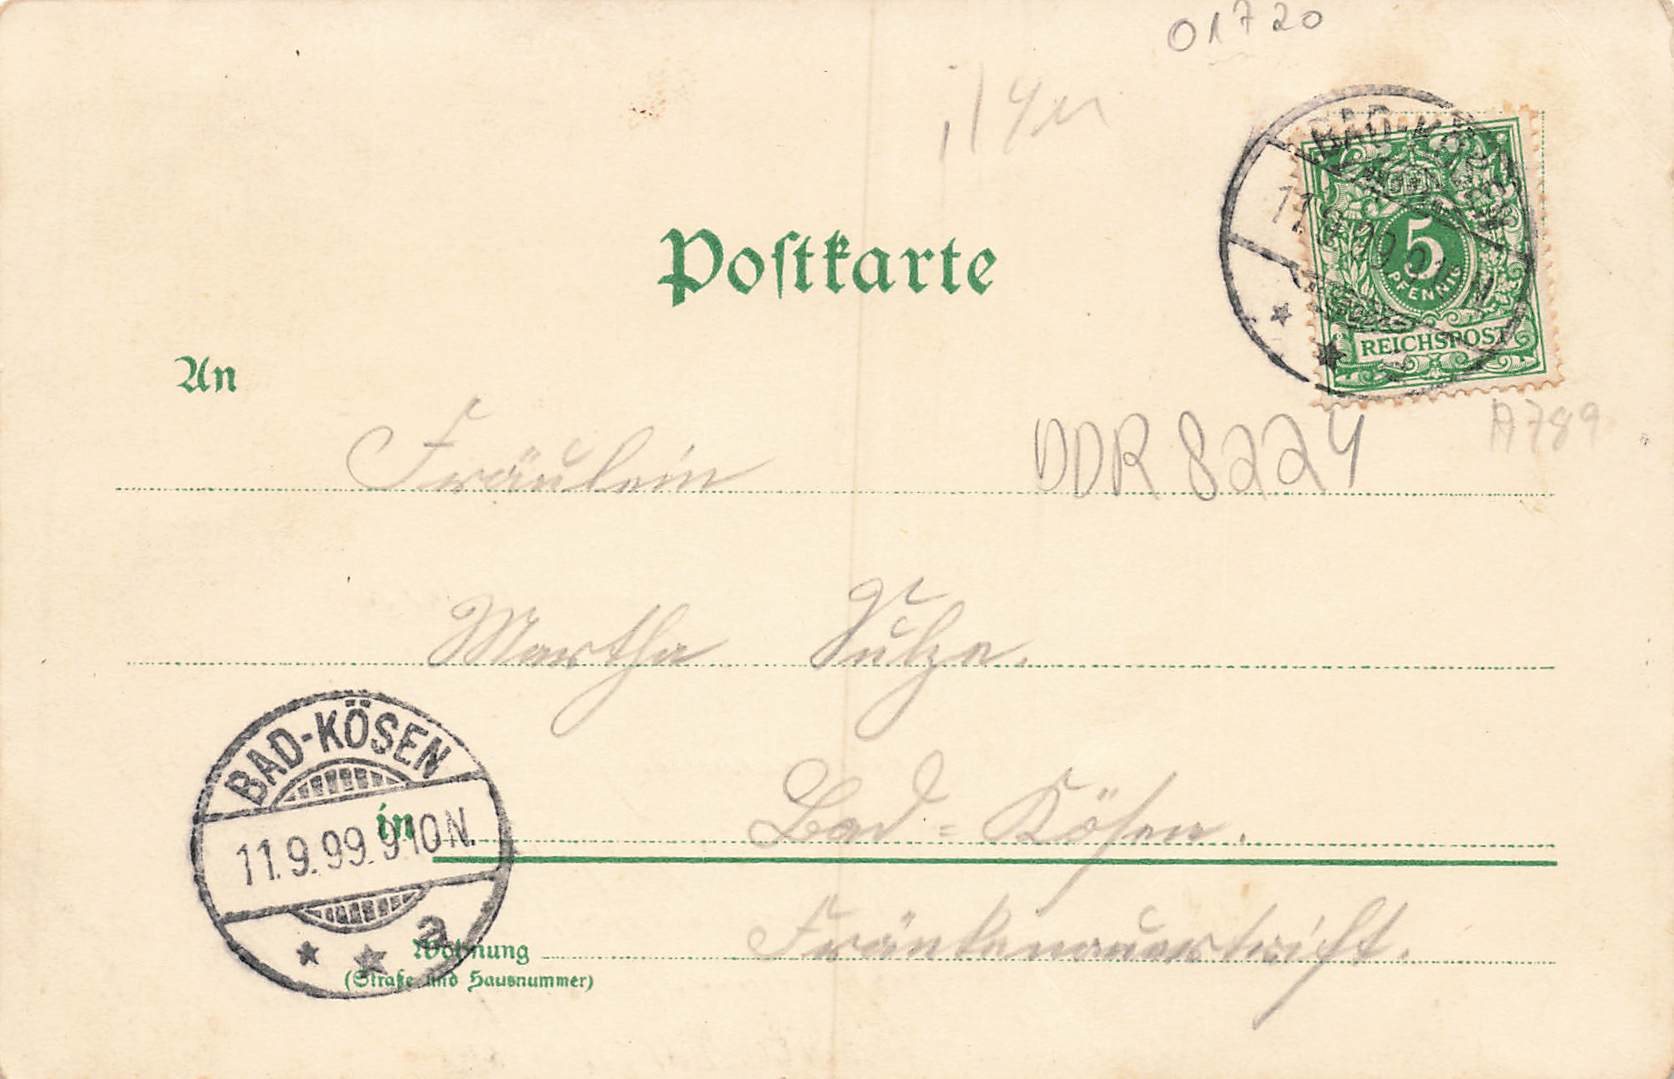 01720
BAD-KÖSEN
5
PFENNIG
REICHSPOST
Postkarte
A789
An
Fräulein
DDR 8224
Martha Sulze.
BAD-KÖSEN
11.9.99. 9-10N.
a
in Bad=Kösen.
Wohnung
(Straße und Hausnummer)